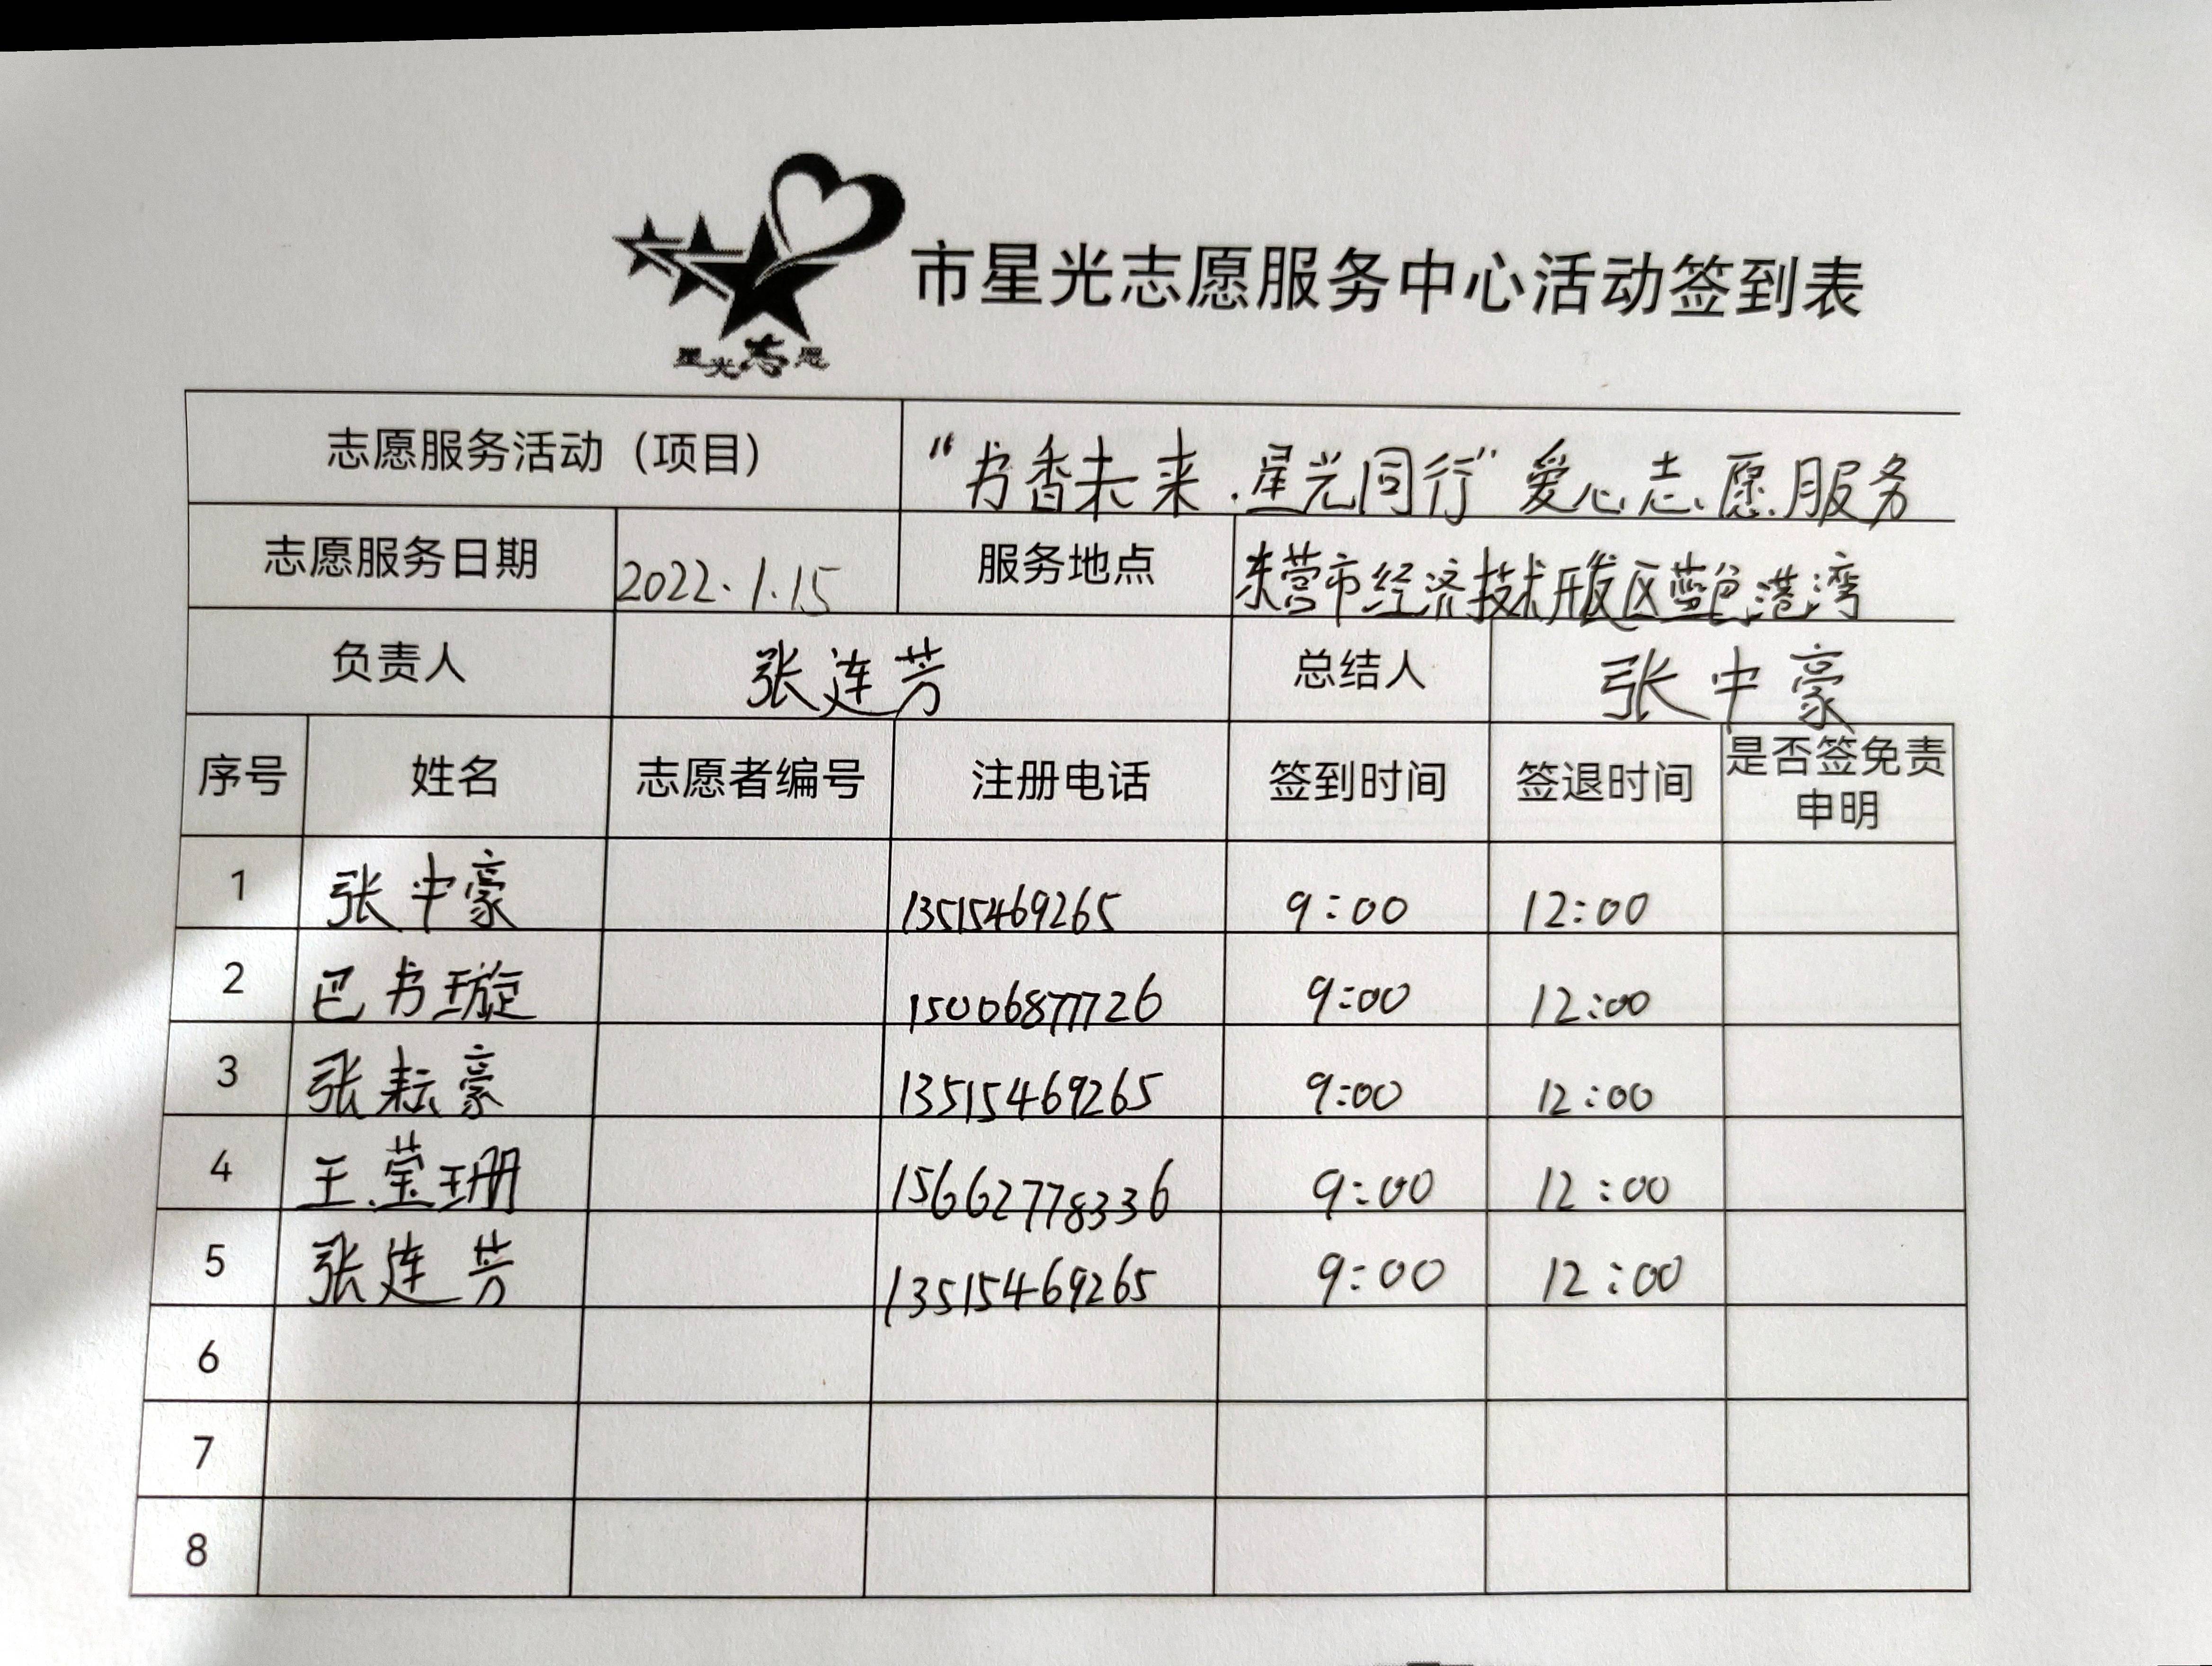 星光志愿
市星光志愿服务中心活动签到表
志愿服务活动（项目） “书香未来.星光同行”爱心志愿服务
志愿服务日期 2022.1.15 服务地点 东营市经济技术开发区蓝色港湾
负责人 张连芳 总结人 张中豪
序号 姓名 志愿者编号 注册电话 签到时间 签退时间 是否签免责
申明
1 张中豪 13515469265 9:00 12:00
2 巴书璇 15006877726 9:00 12:00
3 张耘豪 13515469265 9:00 12:00
4 王莹珊 15662778336 9:00 12:00
5 张连芳 13515469265 9:00 12:00
6
7
8